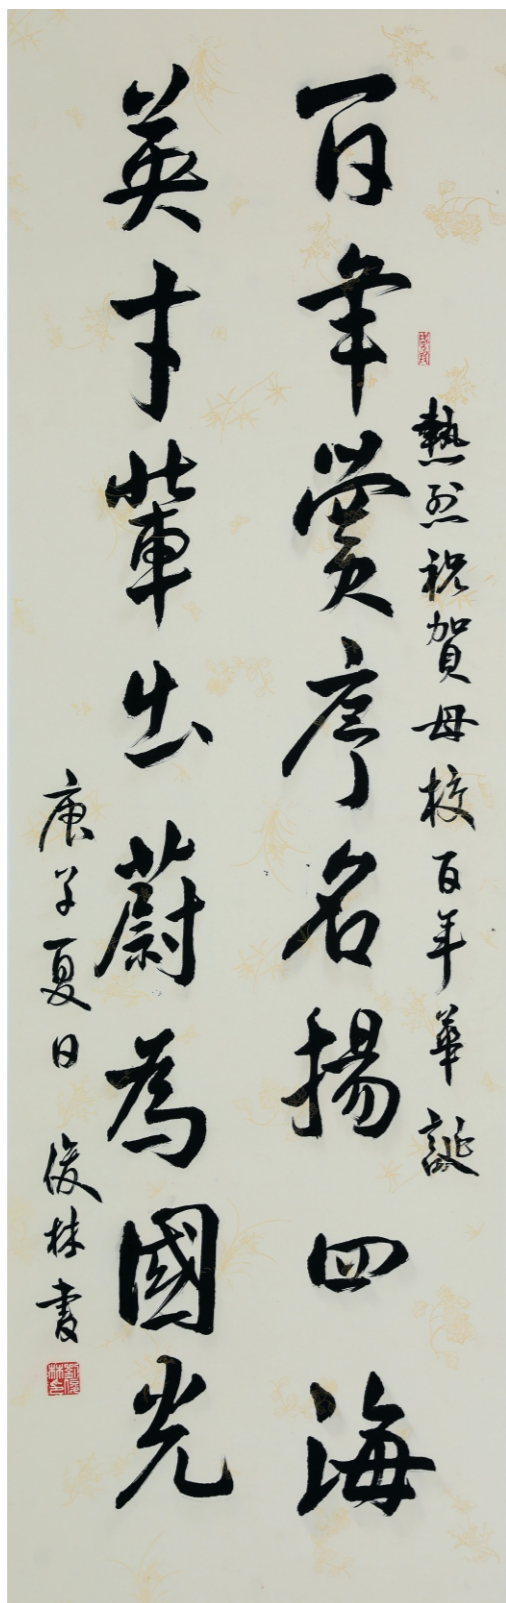 熱烈祝賀母校百年華誕
百年黌序名揚四海
英才輩出蔚為國光
庚子夏日 俊林書